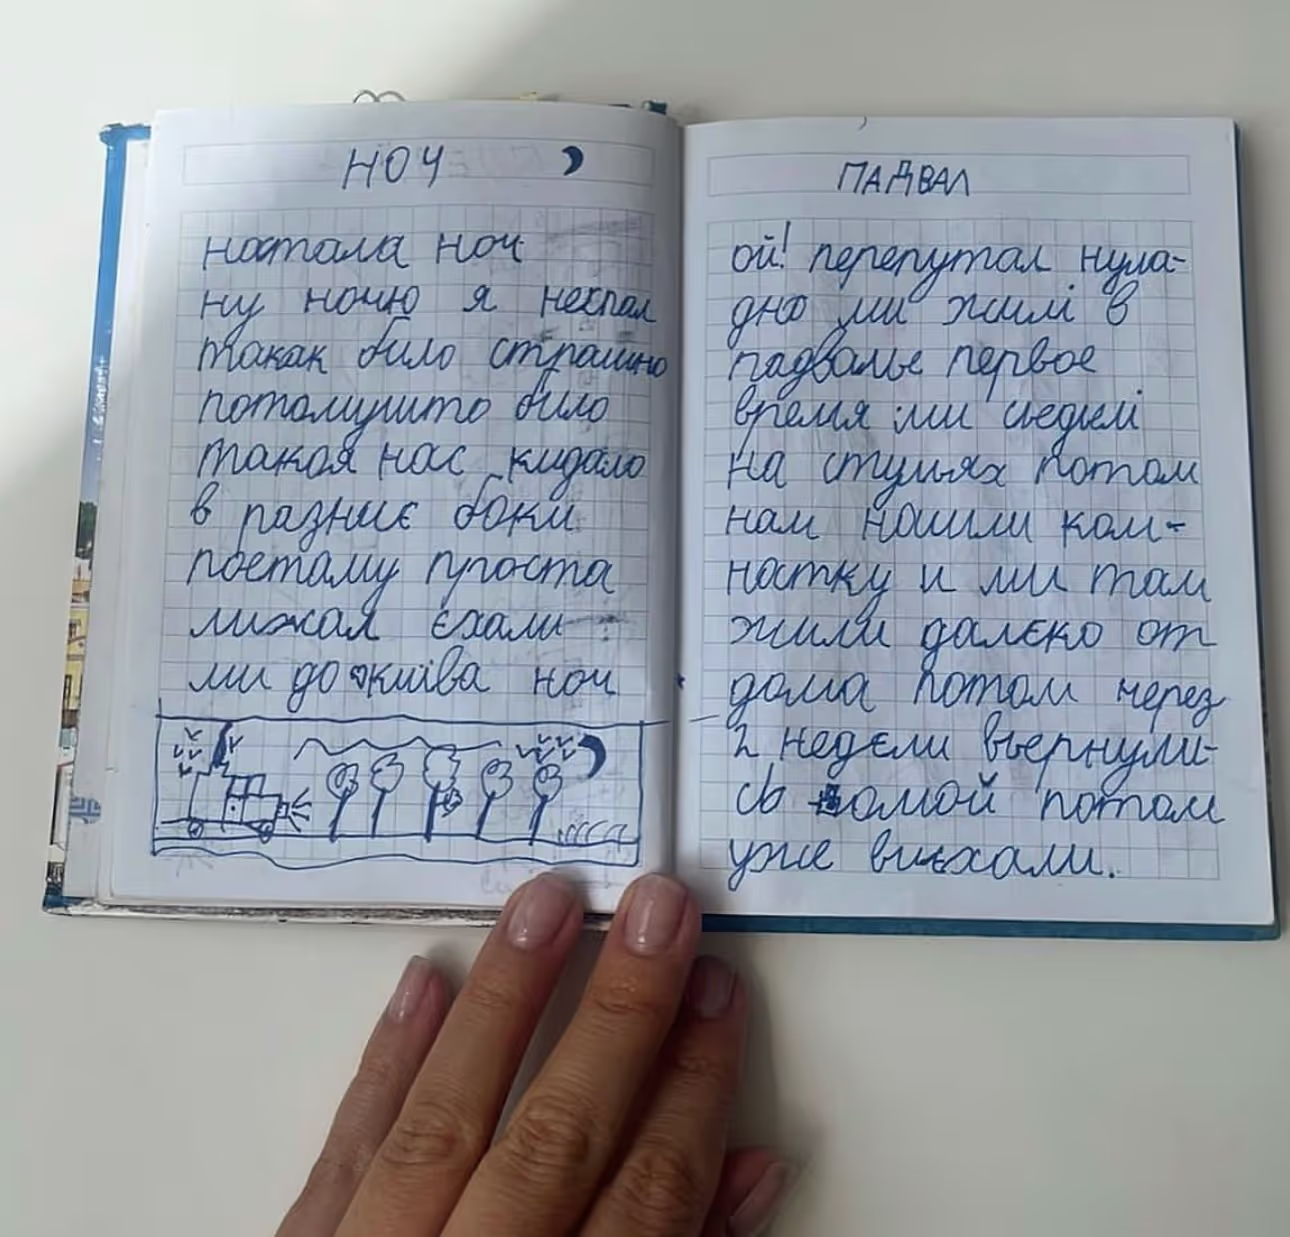 НОЧ
настала ноч
ну ночю я неспал
такак било страшно
потомушто било
такоя нас кидало
в разниє боки
поетаму проста
лижал єхали
ми до київа ноч
ПАДВАЛ
ой! перепутал нула-
дно ми жилі в
падвалье первое
время ми сьедєлі
на стульях потом
нам нашли ком-
настку и ми там
жили далєко от
дома потом через
2 недєли вьернули-
сь домой потом
уже виєхали.